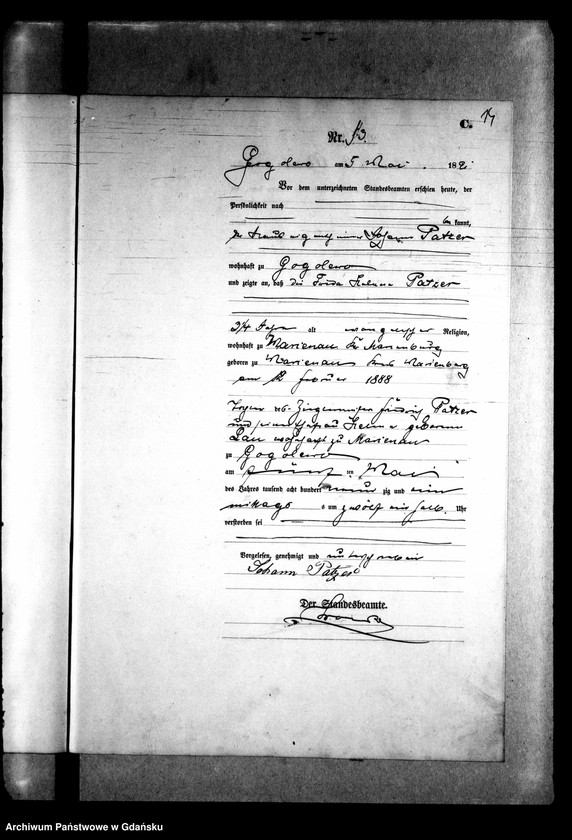 C.
Nr. 13.
Gogolewo am 5 Mai 189
Vor dem unterzeichneten Standesbeamten erschien heute, der
Persönlichkeit nach
be kannt,
Johann Patzer
wohnhaft zu Gogolewo
und zeigte an, daß die Frida Helene Patzer
3 1/4 Jahr alt evangelischer Religion,
wohnhaft zu Marienau Kr Marienburg
geboren zu Marienau Kreis Marienburg
am 12 Februar 1888
Tochter des Friedrich Patzer
und seiner Ehefrau Helene geborenen
Pau wohnhaft zu Marienau
zu Gogolewo
am fünf ten Mai
des Jahres tausend acht hundert neun zig und ein
mittags um zwölf ein halb Uhr
verstorben sei
Vorgelesen, genehmigt und unterschrieben
Johann Patzer
Der Standesbeamte.
Archiwum Państwowe w Gdańsku